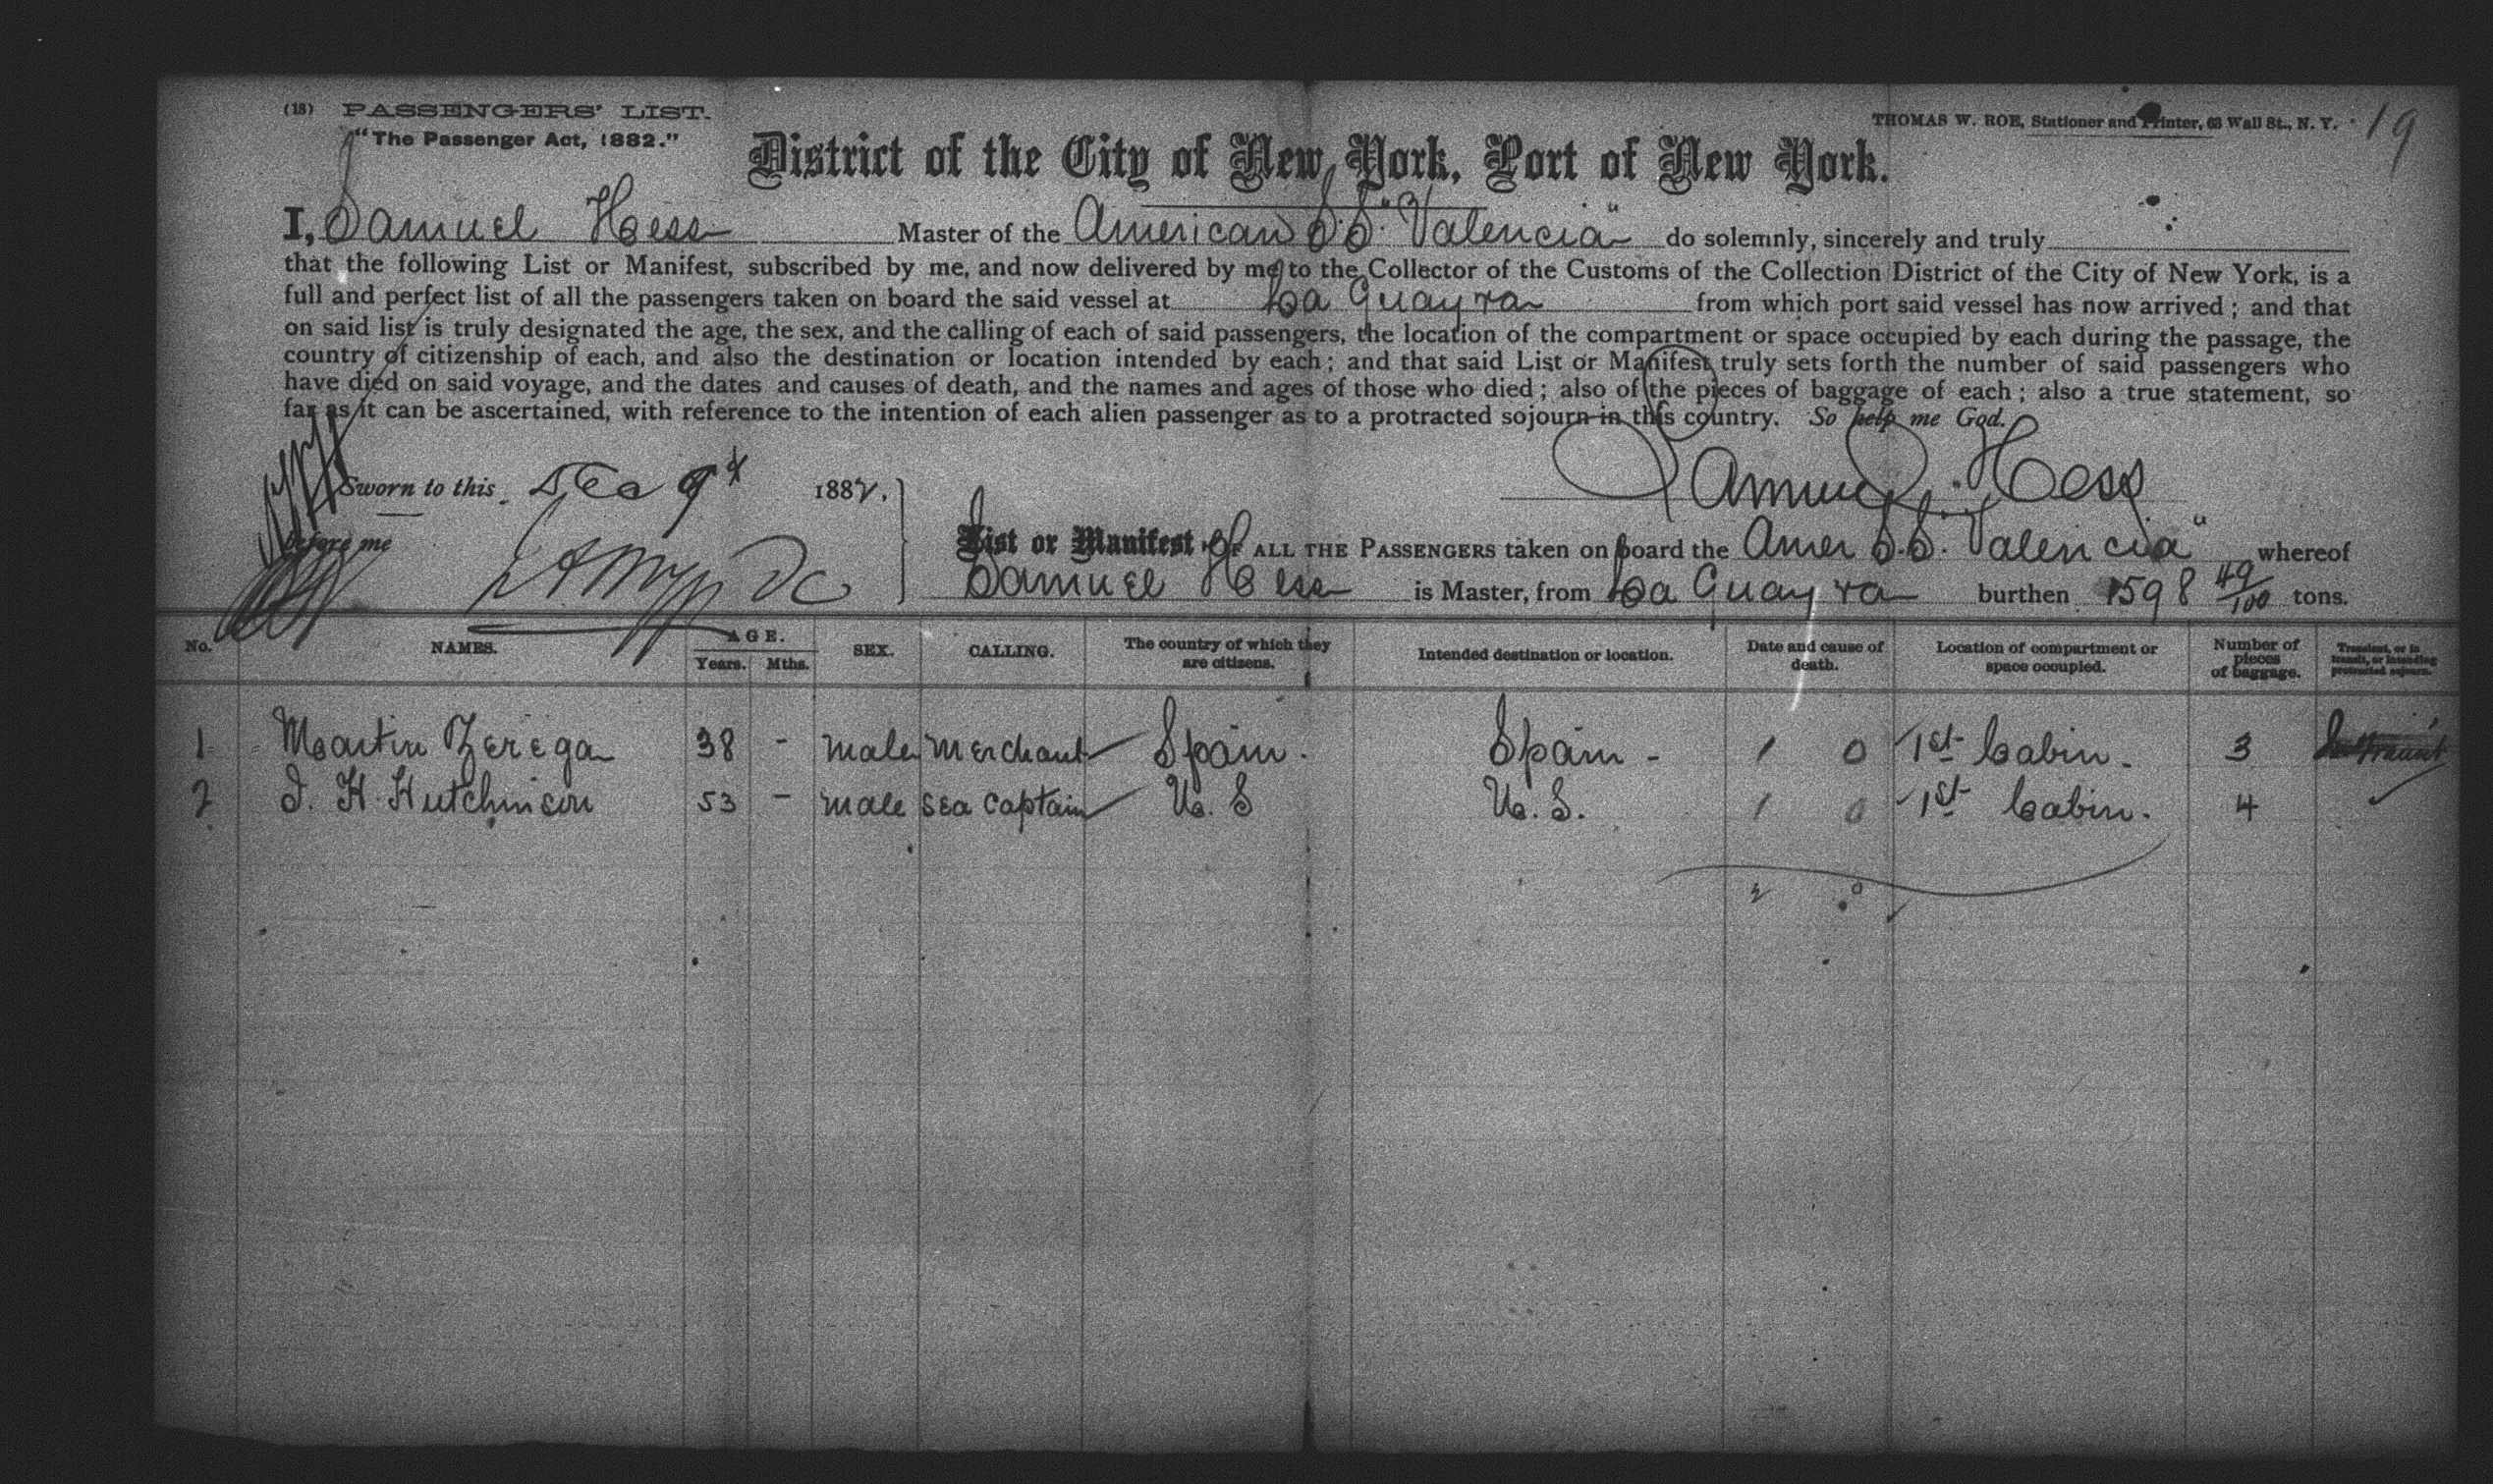 (18) PASSENGERS' LIST.
"The Passenger Act, 1882."
THOMAS W. ROE, Stationer and Printer, 63 Wall St., N. Y.
19
District of the City of New York, Port of New York.
I, Samuel Hess Master of the American S.S. "Valencia" do solemnly, sincerely and truly
that the following List or Manifest, subscribed by me, and now delivered by me to the Collector of the Customs of the Collection District of the City of New York, is a
full and perfect list of all the passengers taken on board the said vessel at La Guayra from which port said vessel has now arrived; and that
on said list is truly designated the age, the sex, and the calling of each of said passengers, the location of the compartment or space occupied by each during the passage, the
country of citizenship of each, and also the destination or location intended by each; and that said List or Manifest truly sets forth the number of said passengers who
have died on said voyage, and the dates and causes of death, and the names and ages of those who died; also of the pieces of baggage of each; also a true statement, so
far as it can be ascertained, with reference to the intention of each alien passenger as to a protracted sojourn in this country. So help me God.
Samuel Hess
Sworn to this Dec 9th 1882.
before me
List or Manifest OF ALL THE PASSENGERS taken on board the Amer S.S. "Valencia" whereof
Samuel Hess is Master, from La Guayra burthen 1598 49/100 tons.
No. NAMES. AGE. Years. Mths. SEX. CALLING. The country of which they are citizens. Intended destination or location. Date and cause of death. Location of compartment or space occupied. Number of pieces of baggage. Transient, or in transit, or intending protracted sojourn.
1 Martin Zerega 38 - male merchant Spain. Spain - 1 0 1st Cabin. 3 In Transit
2 J. H. Hutchinson 53 - male sea captain U. S U. S. 1 0 1st Cabin. 4
2 0